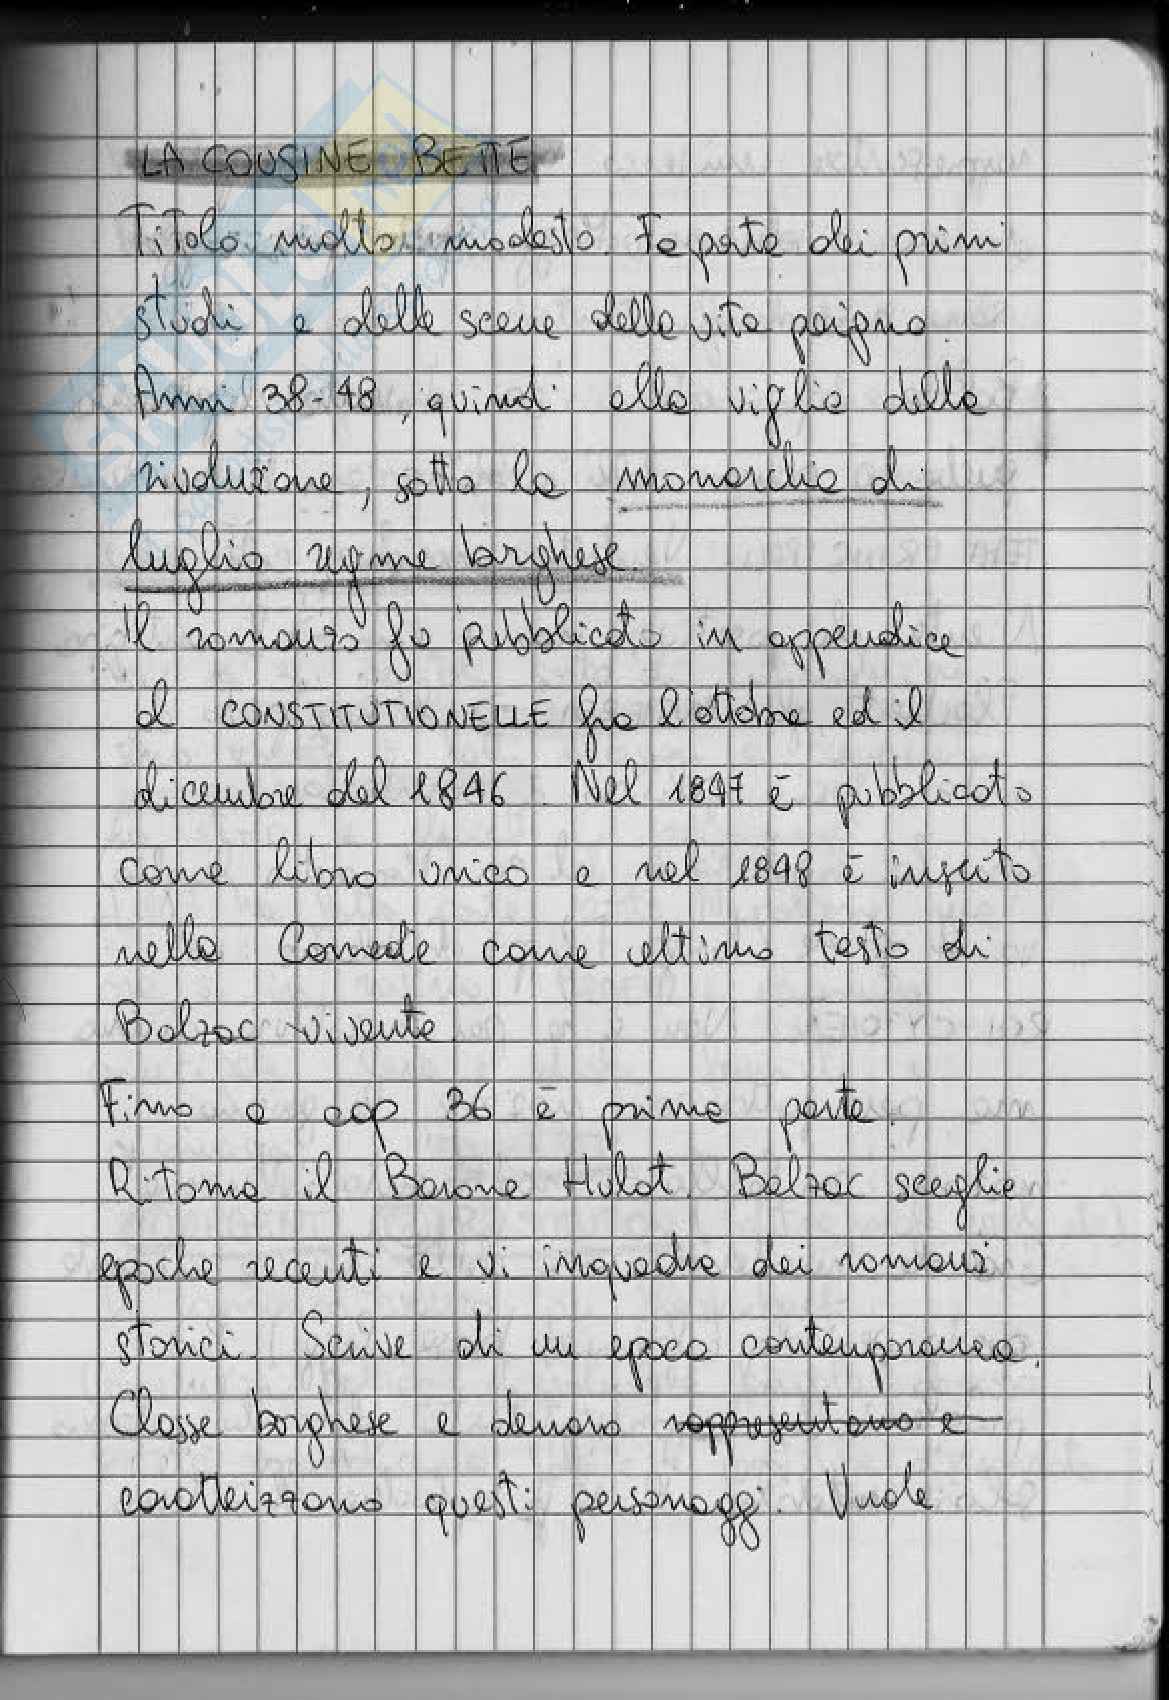 LA COUSINE BETTE
Titolo molto modesto. Fa parte dei primi
studi e delle scene della vita parigina.
Anni 38-48, quindi alla viglia della
rivoluzione, sotto la monarchia di
luglio regime borghese.
Il romanzo fu pubblicato in appendice
al CONSTITUTIONELLE fra l'ottobre ed il
dicembre del 1846. Nel 1847 è pubblicato
come libro unico e nel 1848 è inserito
nella Comedie come ultimo testo di
Balzac vivente.
Fino a cap 36 è prima parte.
Ritorna il Barone Hulot. Balzac sceglie
epoche recenti e vi inquadra dei romanzi
storici. Scrive di un epoca contemporanea.
Classe borghese e denaro rappresentano e
caratterizzano questi personaggi. Vuole